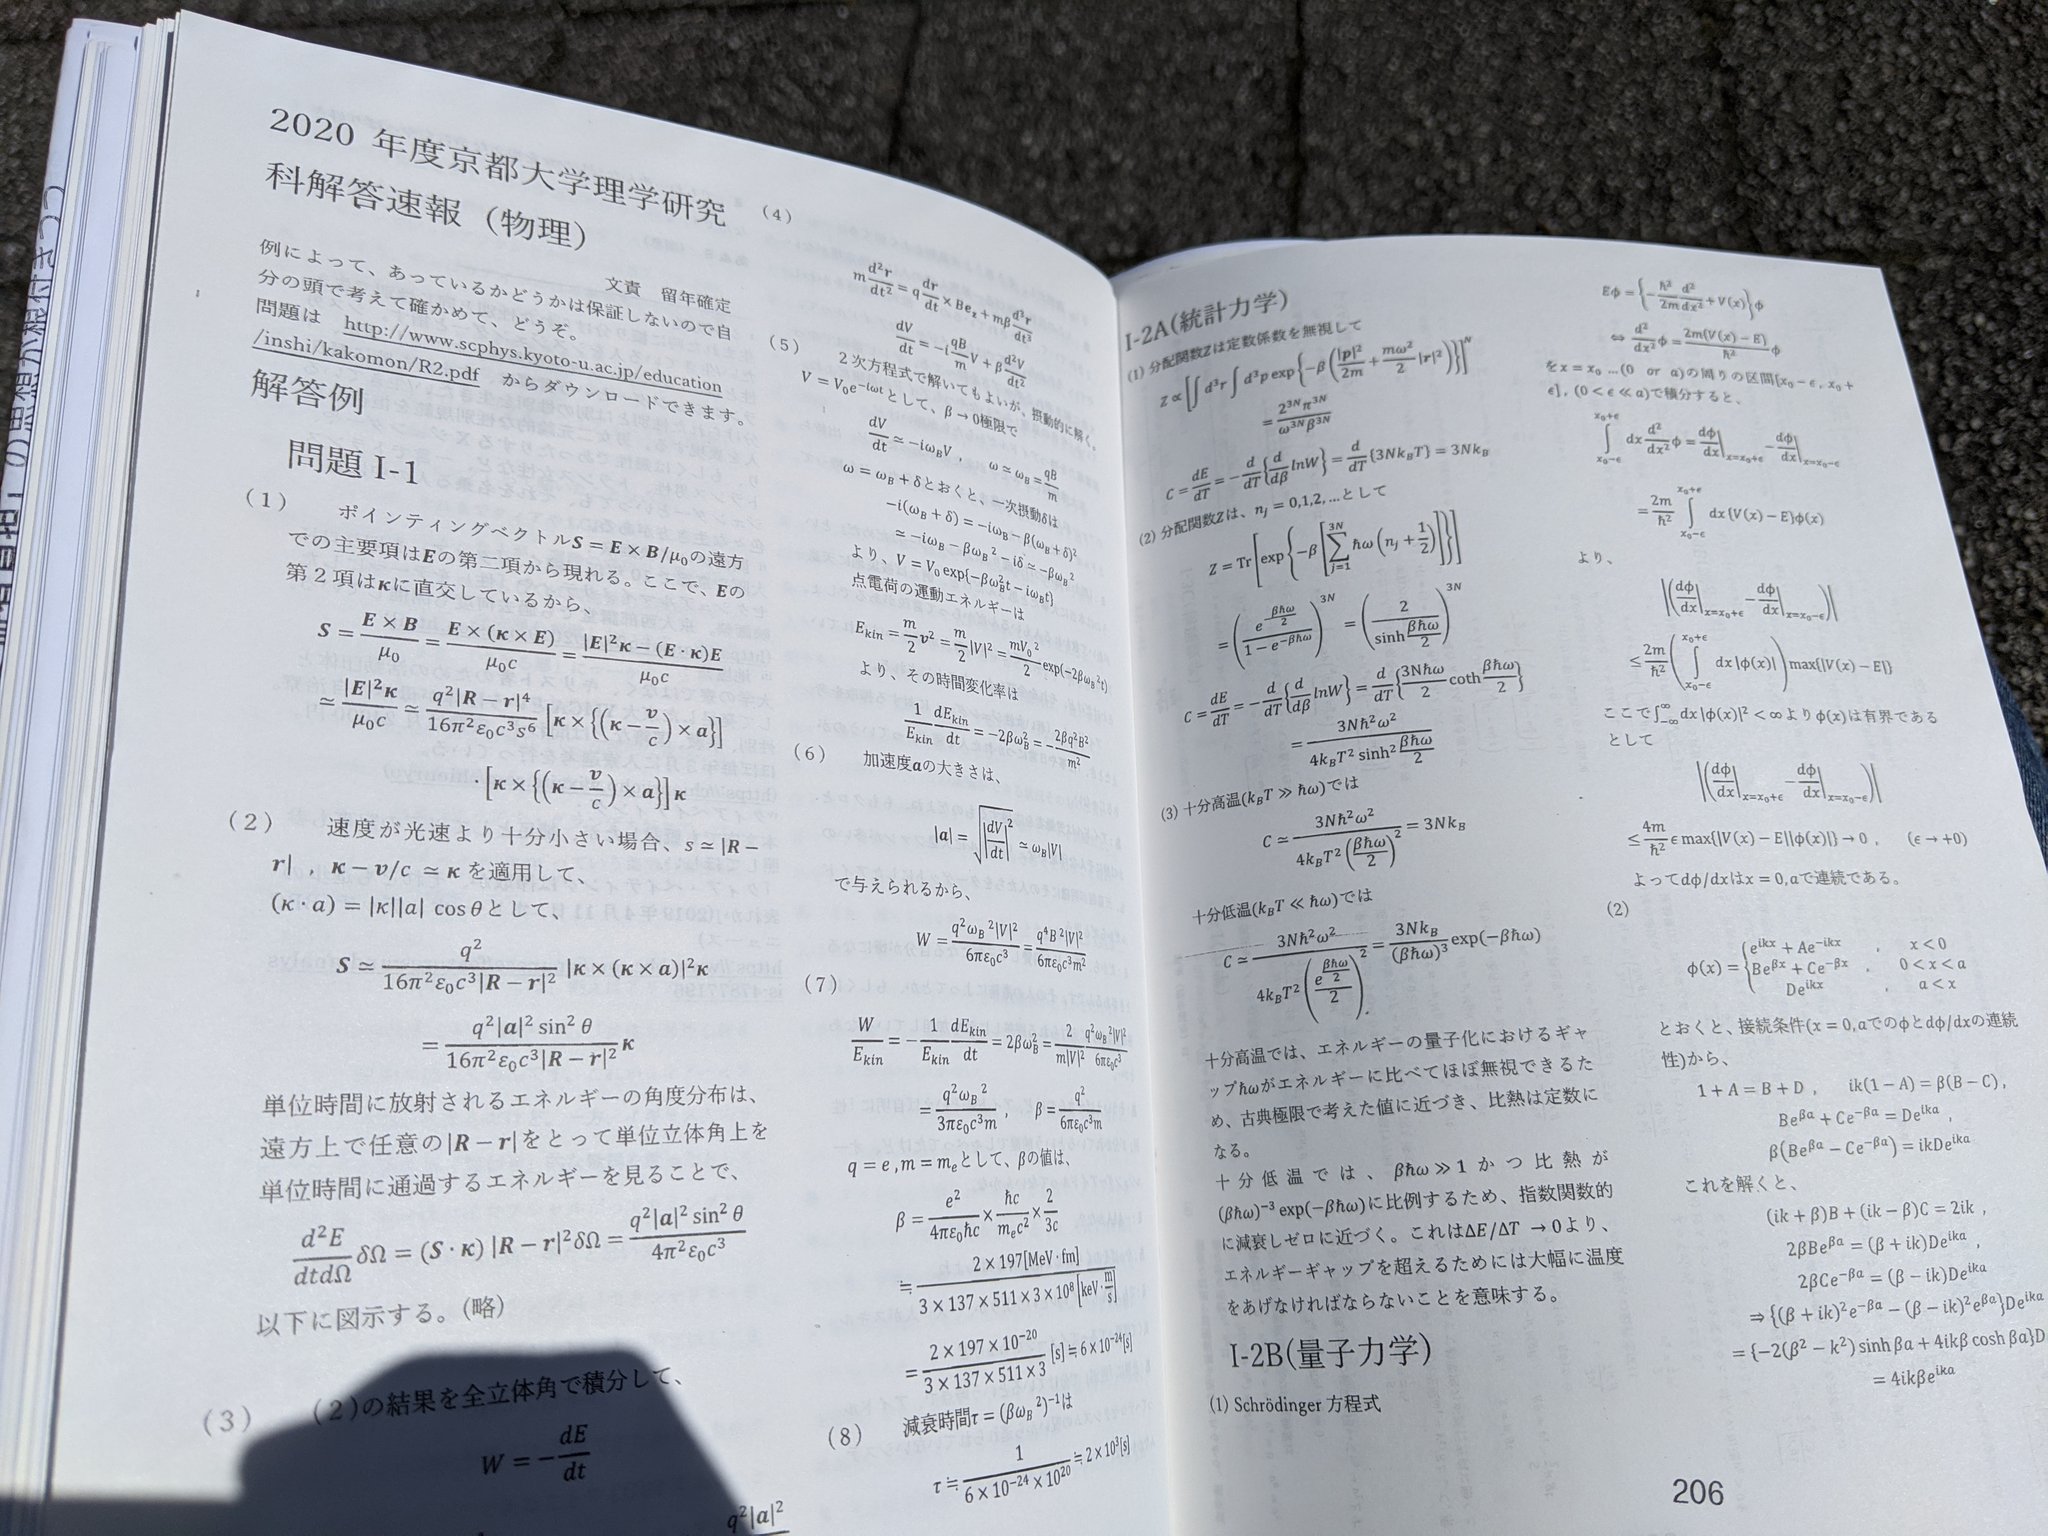 2020 年度京都大学理学研究
科解答速報（物理）
文責　留年確定
例によって、あっているかどうかは保証しないので自
分の頭で考えて確かめて、どうぞ。
問題は　http://www.scphys.kyoto-u.ac.jp/education
/inshi/kakomon/R2.pdf　からダウンロードできます。
解答例
問題 I-1
（1）　ポインティングベクトルS = E × B/μ₀の遠方
での主要項はEの第二項から現れる。ここで、Eの
第２項はκに直交しているから、
S = (E × B)/μ₀ = (E × (κ × E))/(μ₀c) = (|E|²κ − (E · κ)E)/(μ₀c)
≃ |E|²κ/(μ₀c) ≃ (q²|R − r|⁴)/(16π²ε₀c³s⁶) [κ × {(κ − v/c) × a}]
· [κ × {(κ − v/c) × a}] κ
（2）　速度が光速より十分小さい場合、s ≃ |R −
r| , κ − v/c ≃ κ を適用して、
(κ · a) = |κ||a| cos θとして、
S ≃ q²/(16π²ε₀c³|R − r|²) |κ × (κ × a)|²κ
= (q²|a|² sin² θ)/(16π²ε₀c³|R − r|²) κ
単位時間に放射されるエネルギーの角度分布は、
遠方上で任意の|R − r|をとって単位立体角上を
単位時間に通過するエネルギーを見ることで、
d²E/(dtdΩ) δΩ = (S · κ) |R − r|²δΩ = (q²|a|² sin² θ)/(4π²ε₀c³)
以下に図示する。(略)
（3）　（2）の結果を全立体角で積分して、
W = − dE/dt
q²|a|²
（4）
m d²r/dt² = q dr/dt × Be_z + mβ d³r/dt³
dV/dt = −i (qB/m) V + β d²V/dt²
（5）　2 次方程式で解いてもよいが、摂動的に解く。
V = V₀e^(−iωt)として、β → 0極限で
dV/dt ≃ −iω_B V , ω ≃ ω_B = qB/m
ω = ω_B + δとおくと、一次摂動δは
−i(ω_B + δ) = −iω_B − β(ω_B + δ)²
≃ −iω_B − βω_B² − iδ ≃ −βω_B²
より、V = V₀ exp{−βω_B²t − iω_B t}
点電荷の運動エネルギーは
E_kin = (m/2) v² = (m/2) |V|² = (mV₀²/2) exp(−2βω_B²t)
より、その時間変化率は
(1/E_kin) dE_kin/dt = −2βω_B² = − 2βq²B²/m²
（6）　加速度aの大きさは、
|a| = √(|dV/dt|²) ≃ ω_B|V|
で与えられるから、
W = (q²ω_B²|V|²)/(6πε₀c³) = (q⁴B²|V|²)/(6πε₀c³m²)
（7）
W/E_kin = − (1/E_kin) dE_kin/dt = 2βω_B² = (2/(m|V|²)) (q²ω_B²|V|²)/(6πε₀c³)
= (q²ω_B²)/(3πε₀c³m) , β = q²/(6πε₀c³m)
q = e , m = m_e として、βの値は、
β = e²/(4πε₀ħc) × ħc/(m_e c²) × 2/(3c)
≒ (2 × 197[MeV · fm])/(3 × 137 × 511 × 3 × 10⁸ [keV · m/s])
= (2 × 197 × 10⁻²⁰)/(3 × 137 × 511 × 3) [s] ≒ 6 × 10⁻²⁴[s]
（8）　減衰時間τ = (βω_B²)⁻¹は
τ ≒ 1/(6 × 10⁻²⁴ × 10²⁰) ≒ 2 × 10³[s]
I-2A(統計力学)
(1) 分配関数Zは定数係数を無視して
Z ∝ [∫ d³r ∫ d³p exp{−β (|p|²/2m + (mω²/2)|r|²)}]^N
= (2^(3N) π^(3N))/(ω^(3N) β^(3N))
C = dE/dT = − d/dT {d/dβ lnW} = d/dT {3Nk_BT} = 3Nk_B
(2) 分配関数Zは、n_j = 0,1,2, ...として
Z = Tr[exp{−β [Σ_(j=1)^(3N) ħω (n_j + 1/2)]}]
= (e^(−βħω/2)/(1 − e^(−βħω)))^(3N) = (2/(sinh βħω/2))^(3N)
C = dE/dT = − d/dT {d/dβ lnW} = d/dT {(3Nħω/2) coth βħω/2}
= (3Nħ²ω²)/(4k_BT² sinh² βħω/2)
(3) 十分高温(k_BT ≫ ħω)では
C ≃ (3Nħ²ω²)/(4k_BT² (βħω/2)²) = 3Nk_B
十分低温(k_BT ≪ ħω)では
C ≃ (3Nħ²ω²)/(4k_BT² (e^(βħω/2)/2)²) = (3Nk_B/(βħω)³) exp(−βħω)
十分高温では、エネルギーの量子化におけるギャ
ップħωがエネルギーに比べてほぼ無視できるた
め、古典極限で考えた値に近づき、比熱は定数に
なる。
十分低温では、βħω ≫ 1 かつ比熱が
(βħω)⁻³ exp(−βħω)に比例するため、指数関数的
に減衰しゼロに近づく。これはΔE/ΔT → 0より、
エネルギーギャップを超えるためには大幅に温度
をあげなければならないことを意味する。
I-2B(量子力学)
(1) Schrödinger 方程式
Eφ = {− (ħ²/2m) d²/dx² + V(x)} φ
⇔ d²/dx² φ = (2m(V(x) − E)/ħ²) φ
をx = x₀ ...(0 or a)の周りの区間[x₀ − ϵ , x₀ +
ϵ] , (0 < ϵ ≪ a)で積分すると、
∫_(x₀−ϵ)^(x₀+ϵ) dx d²/dx² φ = dφ/dx|_(x=x₀+ϵ) − dφ/dx|_(x=x₀−ϵ)
= (2m/ħ²) ∫_(x₀−ϵ)^(x₀+ϵ) dx {V(x) − E}φ(x)
より、
|(dφ/dx|_(x=x₀+ϵ) − dφ/dx|_(x=x₀−ϵ))|
≤ (2m/ħ²) (∫_(x₀−ϵ)^(x₀+ϵ) dx |φ(x)|) max{|V(x) − E|}
ここで∫_(−∞)^∞ dx |φ(x)|² < ∞よりφ(x)は有界である
として
|(dφ/dx|_(x=x₀+ϵ) − dφ/dx|_(x=x₀−ϵ))|
≤ (4m/ħ²) ϵ max{|V(x) − E||φ(x)|} → 0 , (ϵ → +0)
よってdφ/dxはx = 0, aで連続である。
(2)
φ(x) = { e^(ikx) + Ae^(−ikx) , x < 0
Be^(βx) + Ce^(−βx) , 0 < x < a
De^(ikx) , a < x
とおくと、接続条件(x = 0, aでのφとdφ/dxの連続
性)から、
1 + A = B + D , ik(1 − A) = β(B − C) ,
Be^(βa) + Ce^(−βa) = De^(ika) ,
β(Be^(βa) − Ce^(−βa)) = ikDe^(ika)
これを解くと、
(ik + β)B + (ik − β)C = 2ik ,
2βBe^(βa) = (β + ik)De^(ika) ,
2βCe^(−βa) = (β − ik)De^(ika)
⇒ {(β + ik)²e^(−βa) − (β − ik)²e^(βa)}De^(ika)
= {−2(β² − k²) sinh βa + 4ikβ cosh βa}D
= 4ikβe^(ika)
206